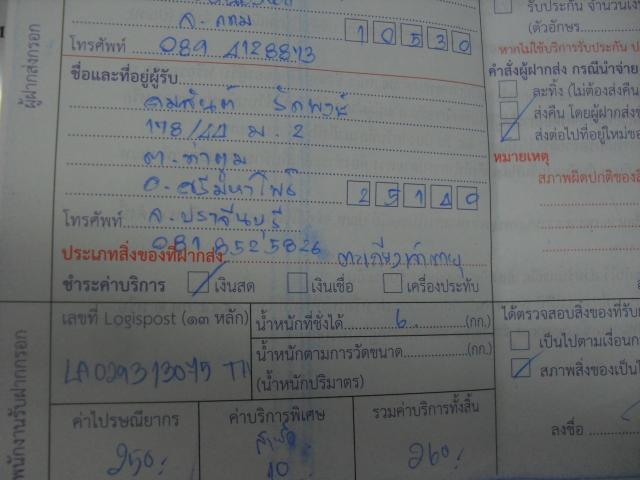 จ. กทม 10530
โทรศัพท์ 089 4128873
ชื่อและที่อยู่ผู้รับ
คมสันต์ รักพงษ์
178/44 ม. 2
ต. ท่าตูม
อ. ศรีมหาโพธิ 25140
จ. ปราจีนบุรี
โทรศัพท์ 081 8525826
ประเภทสิ่งของที่ฝากส่ง ตะเกียงเจ้าพายุ
ชำระค่าบริการ เงินสด เงินเชื่อ เครื่องประทับ
เลขที่ Logispost (๑๓ หลัก)
LA029313075 TH
น้ำหนักที่ชั่งได้ 6 (กก.)
น้ำหนักตามการวัดขนาด (กก.)
(น้ำหนักปริมาตร)
ค่าไปรษณียากร
250.
ค่าบริการพิเศษ
10
รวมค่าบริการทั้งสิ้น
260.
ผู้ฝากส่งกรอก
พนักงานรับฝากกรอก
รับประกัน จำนวนเงิน
(ตัวอักษร
หากไม่ใช้บริการรับประกัน
คำสั่งผู้ฝากส่ง กรณีนำจ่าย
ละทิ้ง (ไม่ต้องส่งคืน
ส่งคืน โดยผู้ฝากส่ง
ส่งต่อไปที่อยู่ใหม่
หมายเหตุ
สภาพผิดปกติของ
ได้ตรวจสอบสิ่งของที่รับ
เป็นไปตามเงื่อน
สภาพสิ่งของเป็น
ลงชื่อ